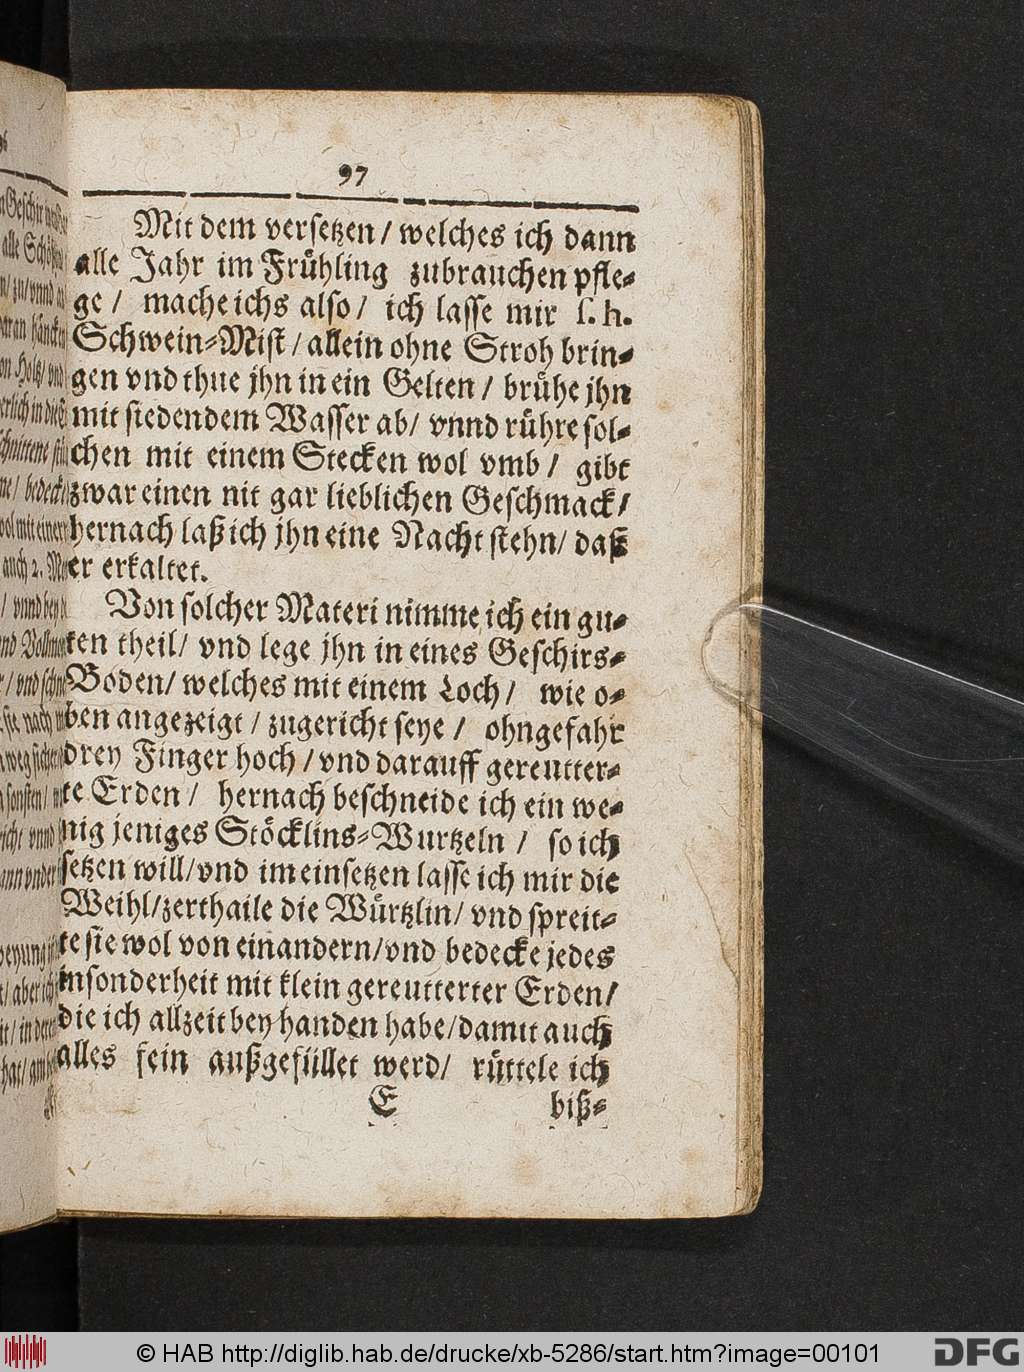 97
Mit dem versetzen / welches ich dann
alle Jahr im Frühling zubrauchen pfle-
ge / mache ichs also / ich lasse mir s. h.
Schwein-Mist / allein ohne Stroh brin-
gen vnd thue jhn in ein Gelten / brühe jhn
mit siedendem Wasser ab / vnnd rühre sol-
chen mit einem Stecken wol vmb / gibt
zwar einen nit gar lieblichen Geschmack /
hernach laß ich jhn eine Nacht stehn / daß
er erkaltet.
Von solcher Materi nimme ich ein gu-
ten theil / vnd lege jhn in eines Geschirs-
Boden / welches mit einem Loch / wie o-
ben angezeigt / zugericht seye / ohngefahr
drey Finger hoch / vnd darauff gereutter-
te Erden / hernach beschneide ich ein we-
nig jeniges Stöcklins-Wurtzeln / so ich
setzen will / vnd im einsetzen lasse ich mir die
Weihl / zerthaile die Würtzlin / vnd spreit-
te sie wol von einandern / vnd bedecke jedes
insonderheit mit klein gereutterter Erden /
die ich allzeit bey handen habe / damit auch
alles fein außgefüllet werd / rüttele ich
E biß-
© HAB http://diglib.hab.de/drucke/xb-5286/start.htm?image=00101
DFG